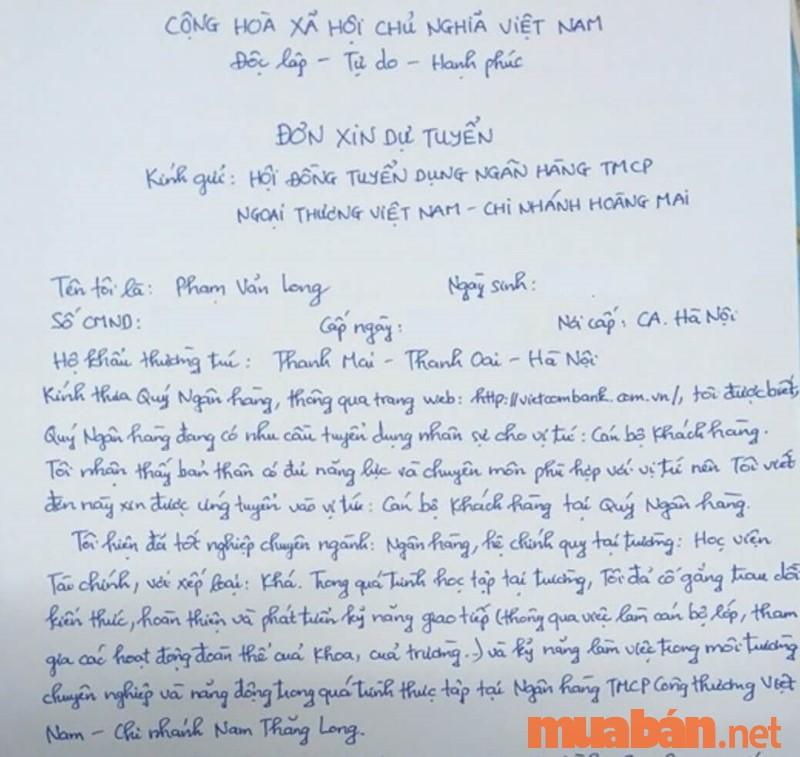 CỘNG HOÀ XÃ HỘI CHỦ NGHĨA VIỆT NAM
Độc lập - Tự do - Hạnh phúc
ĐƠN XIN DỰ TUYỂN
Kính gửi: HỘI ĐỒNG TUYỂN DỤNG NGÂN HÀNG TMCP
NGOẠI THƯƠNG VIỆT NAM - CHI NHÁNH HOÀNG MAI
Tên tôi là: Phạm Văn Long Ngày sinh:
Số CMND: Cấp ngày: Nơi cấp: CA. Hà Nội
Hộ khẩu thường trú: Thanh Mai - Thanh Oai - Hà Nội
Kính thưa Quý Ngân hàng, thông qua trang web: http://vietcombank.com.vn/, tôi được biết,
Quý Ngân hàng đang có nhu cầu tuyển dụng nhân sự cho vị trí: Cán bộ Khách hàng.
Tôi nhận thấy bản thân có đủ năng lực và chuyên môn phù hợp với vị trí nên Tôi viết
đơn này xin được ứng tuyển vào vị trí: Cán bộ Khách hàng tại Quý Ngân hàng.
Tôi hiện đã tốt nghiệp chuyên ngành: Ngân hàng, hệ chính quy tại trường: Học viện
Tài chính, với xếp loại: Khá. Trong quá trình học tập tại trường, Tôi đã cố gắng trau dồi
kiến thức, hoàn thiện và phát triển kỹ năng giao tiếp (thông qua việc làm cán bộ lớp, tham
gia các hoạt động đoàn thể của Khoa, của trường..) và kỹ năng làm việc trong môi trường
chuyên nghiệp và năng động trong quá trình thực tập tại Ngân hàng TMCP Công thương Việt
Nam - Chi nhánh Nam Thăng Long.
muabán.net